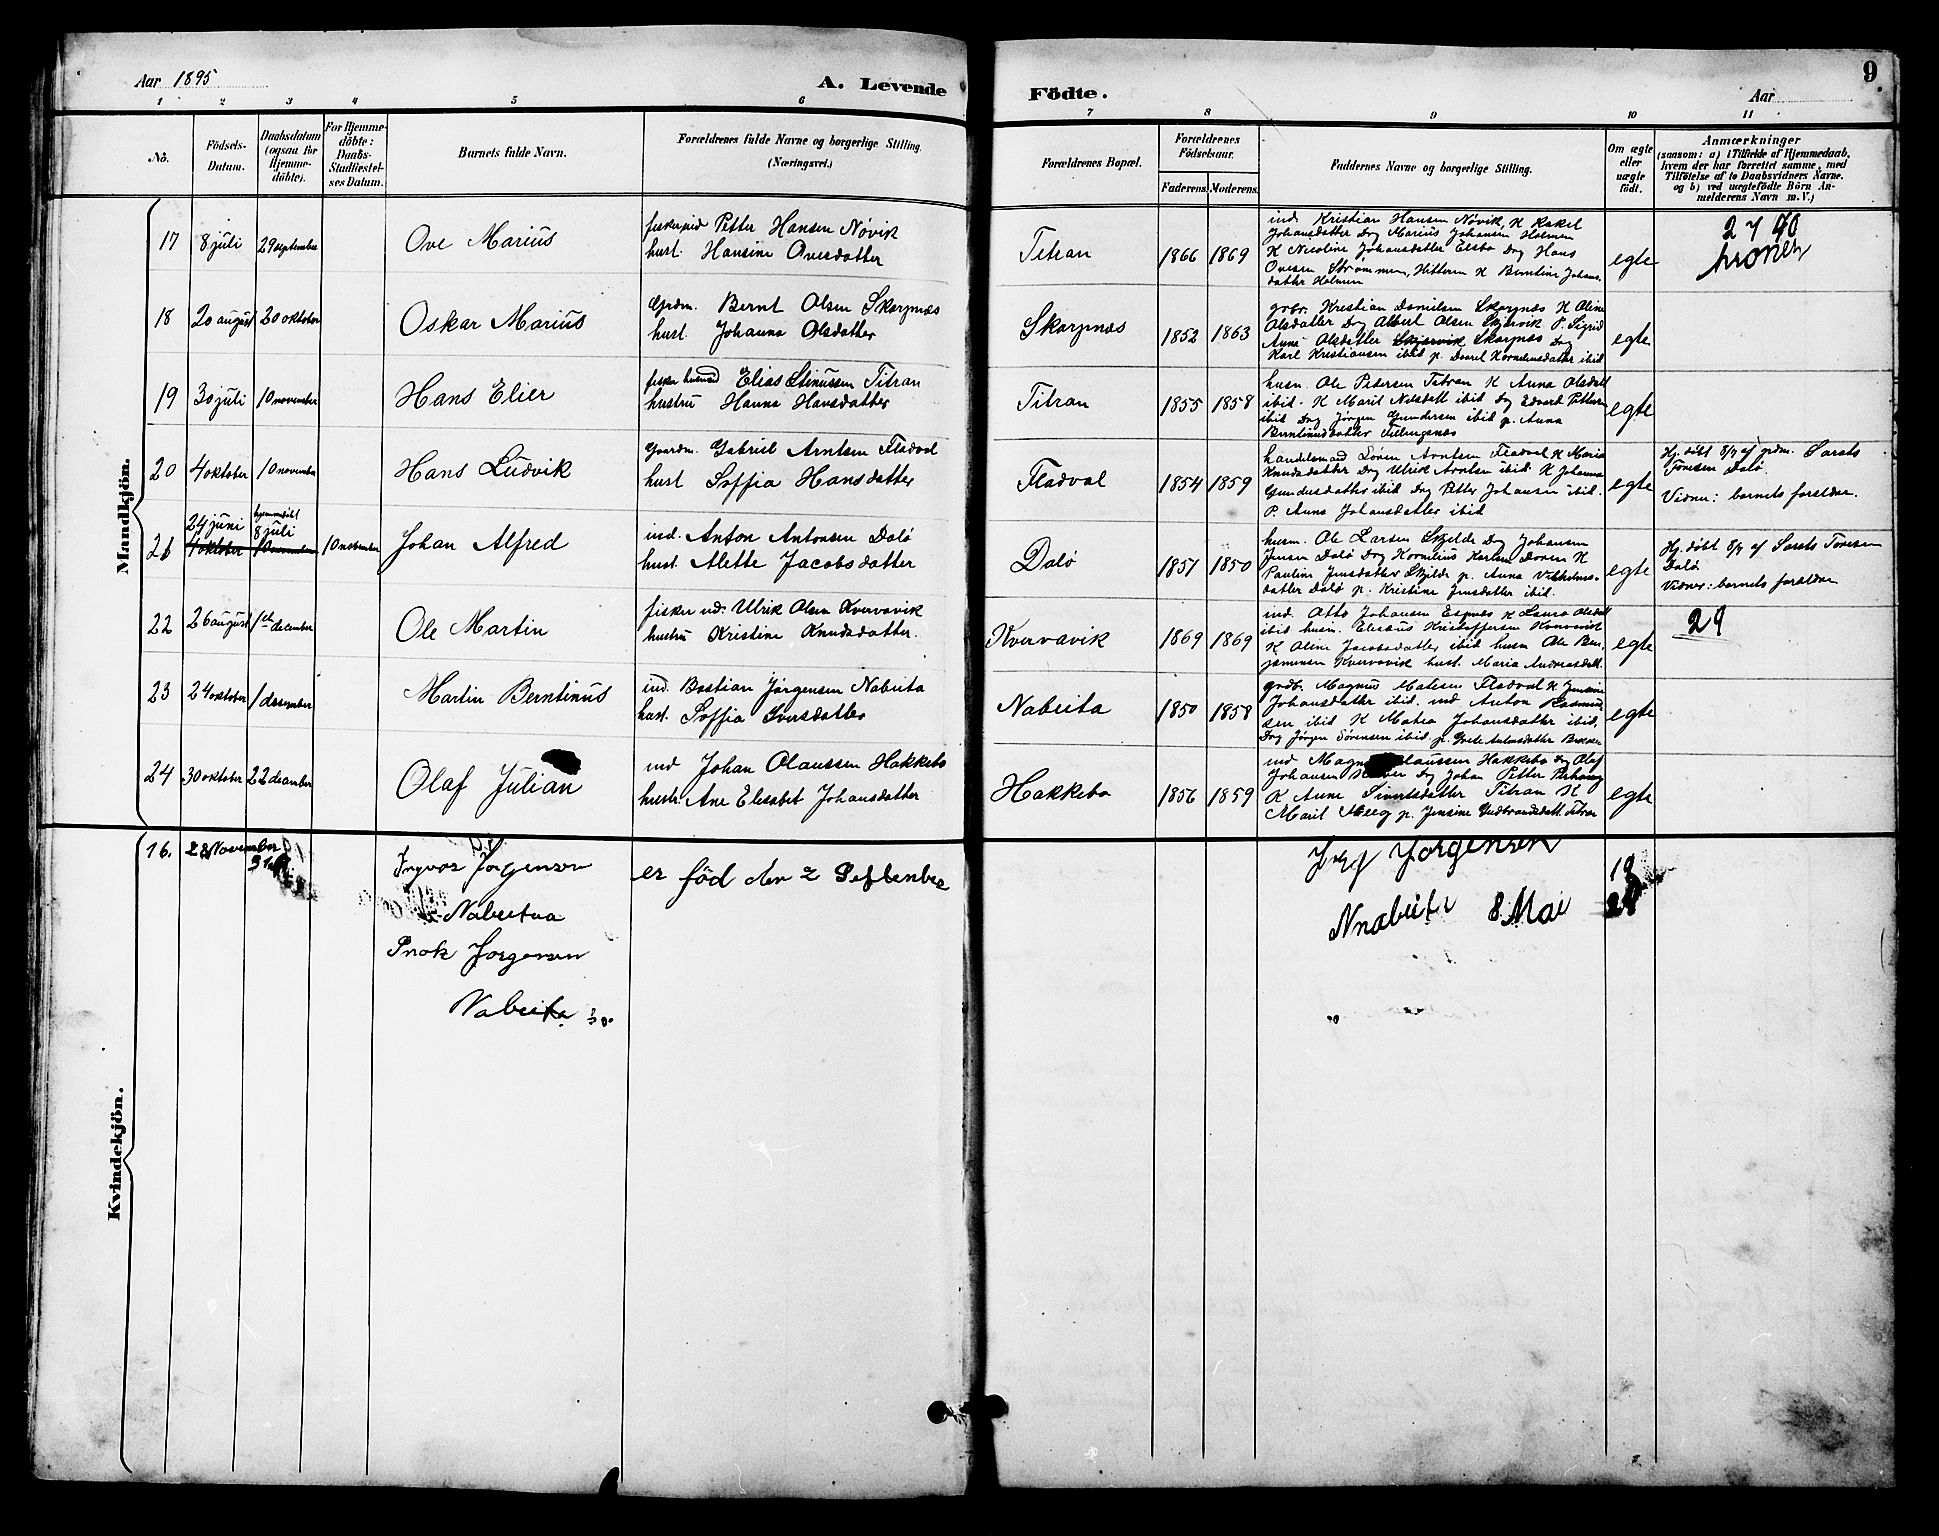 Aar 1895
A. Levende
Födte.
Aar
9
1 2 3 4 5 6 7 8 9 10 11
No.
Födsels-Datum.
Daabsdatum (ogsaa for Hjemme-döbte).
For Hjemme-döbte: Daabs-Stadfæstel-ses Datum.
Barnets fulde Navn.
Forældrenes fulde Navne og borgerlige Stilling. (Næringsvei.)
Forældrenes Bopæl.
Forældrenes Födselsaar.
Faderens. Moderens.
Faddernes Navne og borgerlige Stilling.
Om ægte eller uægte födt.
Anmærkninger
(saasom: a) i Tilfælde af Hjemmedaab, hvem der har forrettet samme, med Tilföielse af to Daabsvidners Navne. og b) ved uægtefödte Börn An-melderens Navn m. V.)
Mandkjön.
17 8 juli 29 september Ove Marius
Petter Hansen Nøvik
hust. Hansine Ovesdatter
Titran 1866 1869
ind. Kristian Hansen Nøvik, K Rakel
Johansdatter Dg Marius Johansen Holmen
K Nicoline Johansdatter Dg Hans
Ovesen Strømmen, Hitteren K Berntine Johans-
datter Holmen
egte
kroner
18 20 august 20 oktober Oskar Marius
Grdm. Bernt Olsen Skarpnæs
hust. Johanna Olsdatter
Skarpnæs 1852 1863
grbr. Kristian Danielsen Skarpnæs K Oline
Olsdatter Dg Albert Olsen Skjervik P. Sigrid
Anna Olsdatter Skjervik Skarpnæs Dg
Karl Kristiansen ibid p. Kornelusdatter ibid
egte
19 30 juli 10 november Hans Elier
fisker husmd Elias Stinussen Titran
hustru Hanna Hansdatter
Titran 1855 1858
husm. Ole Pedersen Titran K Anna Olsdatt
ibid. K Marit Nelsdatt ibid Dg Edvard Pettersen
ibid Dg Jørgen Gundersen ibid p. Anna
egte
20 4 oktober 10 november Hans Ludvik
Gaardm. Gabriel Arntsen Fladval
hust Soffia Hansdatter
Fladval 1854 1859
handelsmand Søren Arntsen Fladval K Maria
Knudsdatter Dg Ulrik Arntsen ibid. K Johanna
Gundersdatter ibid Dg Petter Johansen ibid.
P. Anna Johansdatter ibid
egte
Hj. døbt 8/9 af grdm. Sarats
Toresen Dalø.
Vidner: barnets forældre.
21 24 juni hjemmedøbt 8 juli
4 oktober 10 november 10 november Johan Alfred
ind. Anton Antonsen Dalø
hust. Alette Jacobsdatter
Dalø 1851 1850
husm. Ole Larsen Skjelde Dg Johansen
Jensen Dalø Dg Kornelius Karlsen K
Pauline Jensdatter Skjelde p. Anna Vilhelms-
datter Dalø p. Kristine Jensdatter ibid.
egte
Hj. døbt 8/7 af Sarats Toresen
Dalø
Vidner: barnets forældre
22 26 august 1ste december Ole Martin
fisker ind. Ulrik Olsen Kvervavik
hustru Kristine Knudsdatter.
Kvervavik 1869 1869
ind. Otto Johansen Espnes K Laura Olsdatt
ibid husm. Elesæus Kristoffersen Kvervavik
K Oline Jacobsdatter ibid husm Ole Ben-
jaminsen Kvervavik hust. Maria Andreasdatt.
egte
29
23 24 oktober 1 desember Martin Berntinus
ind. Bastian Jørgensen Nabeita
hust. Soffia Iversdatter
Nabeita 1850 1858
grdb. Magnus Matisen Fladval K Jensine
Johansdatter ibid. ind Anton Rasmus-
sen ibid K Matea Johansdatter ibid.
Dg Jørgen Sørensen ibid. p. Grete
egte
24 30 oktober 22 decamber Olaf Julian
ind Johan Olaussen Hakkebo
hustr. Ane Elisabet Johansdatter
Hakkebo 1856 1859
ind Olaussen Hakkebo Dg Olaf
Johansen Dg Johan Petter
K Anne Sivertsdatter Titran K
Marit p. Jensine Gudbrandsdatt. Titran
egte
Kvindekjön.
16. 28 November
Ingvar Jorgensen er föd den 2 September
Nabeitaa
Jorgensen
Nabeita
Jorgensen 19
Nnabeita 8 Mai